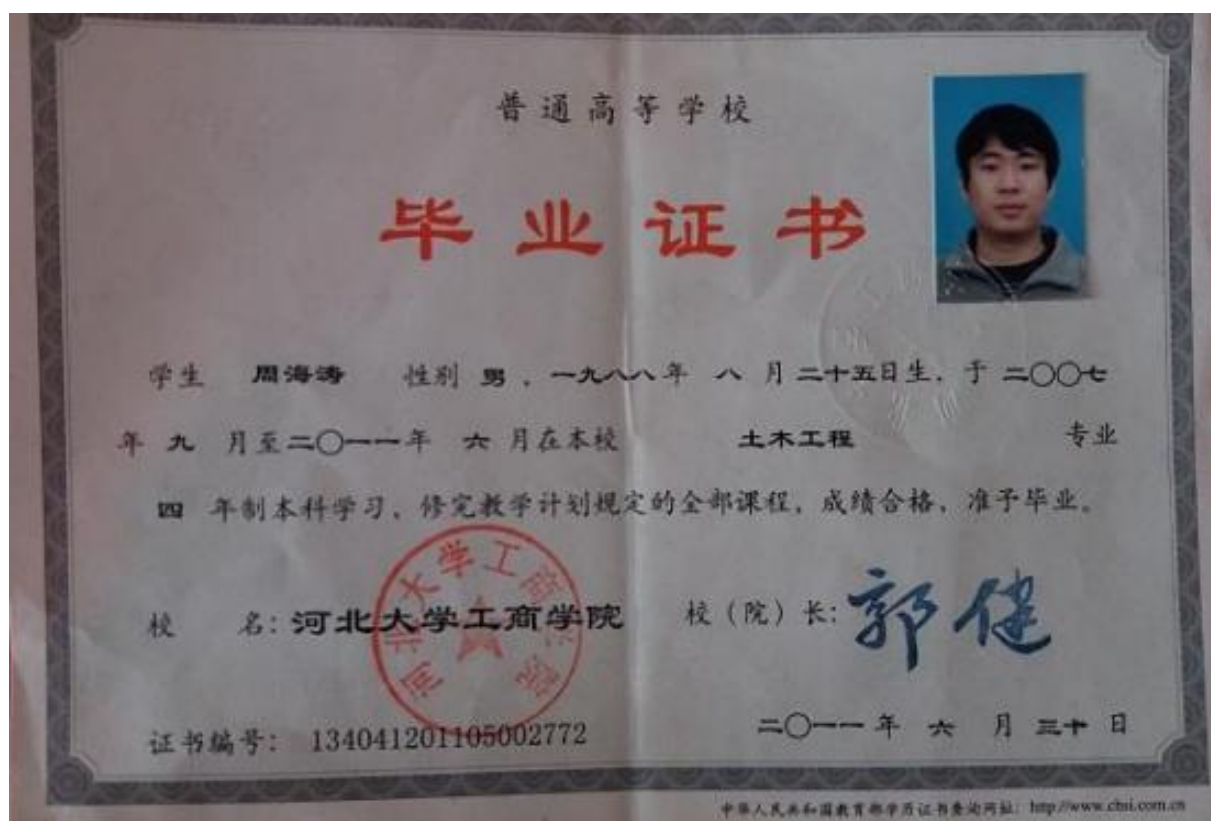 普通高等学校
毕业证书
学生 周海涛 性别 男 , 一九八八年 八 月 二十五日生, 于 二〇〇七
年 九 月至二〇一一年 六 月在本校 土木工程 专业
四 年制本科学习, 修完教学计划规定的全部课程, 成绩合格, 准予毕业。
河北大学工商学院
校 名: 河北大学工商学院 校(院)长: 郭健
证书编号: 134041201105002772 二〇一一 年 六 月 三十 日
中华人民共和国教育部学历证书查询网址: http://www.chsi.com.cn